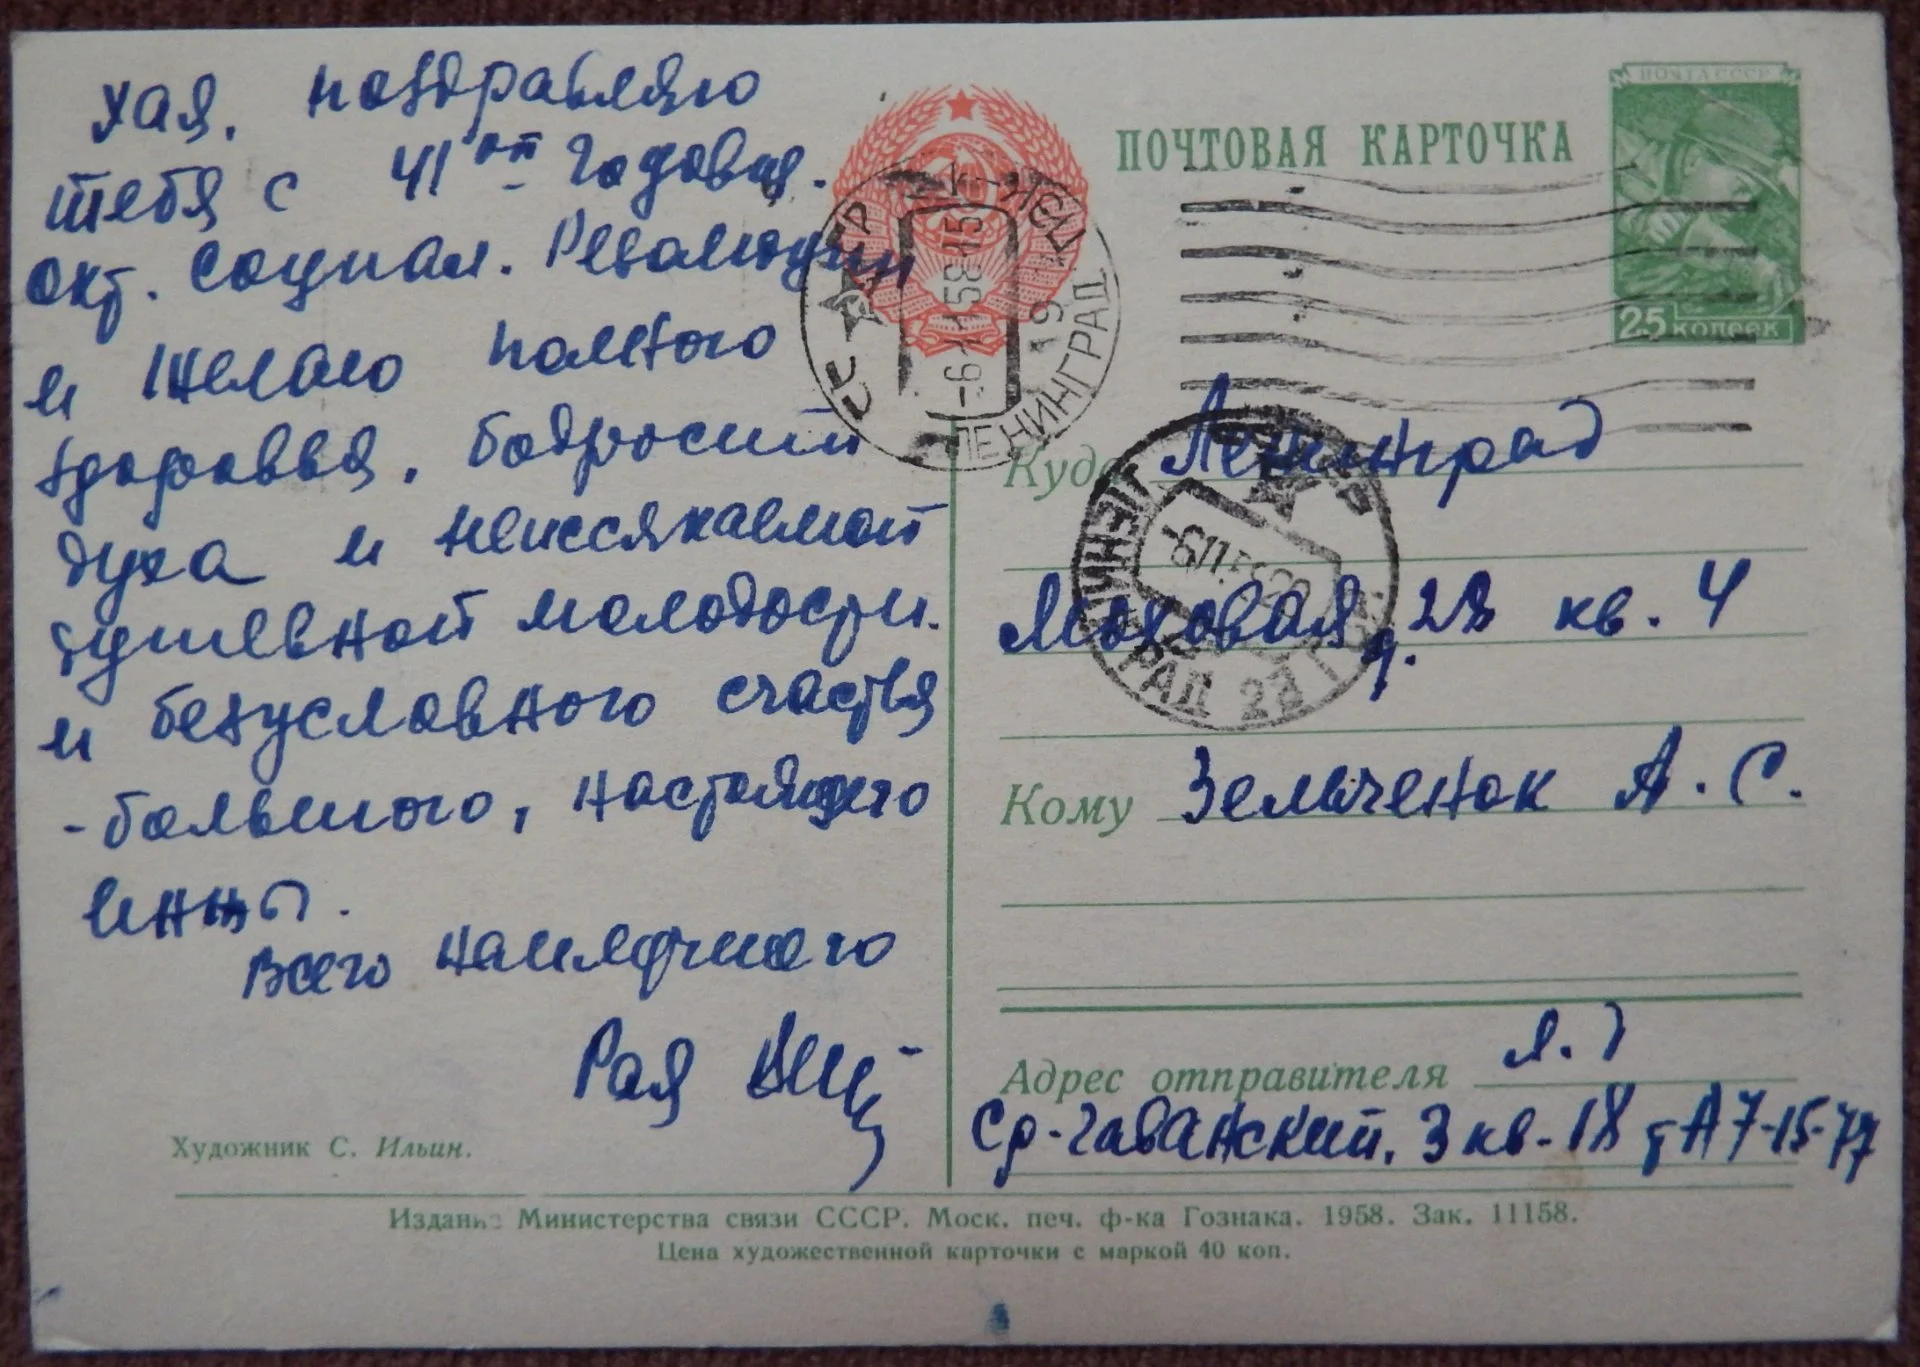 Хая, поздравляю
тебя с 41ой годовщ.
окт. социал. Революции
и желаю полного
здоровья, бодростий
духа и неиссякаемой
душевной молодости.
и безусловного счастья
- большого, настоящего
Всего наилучшего
Рая
Художник С. Ильин.
ПОЧТОВАЯ КАРТОЧКА
ПОЧТА СССР
25 копеек
СССР
ЛЕНИНГРАД
-6 11 58 -15
19
ЛЕНИНГРАД 22
-6 11
Куда Ленинград
Моховая, д. 28 кв. 4
Кому Зельченок А. С.
Адрес отправителя
Ср-Гаванский, 3 кв-18 т А7-15-77
Издание Министерства связи СССР. Моск. печ. ф-ка Гознака. 1958. Зак. 11158.
Цена художественной карточки с маркой 40 коп.